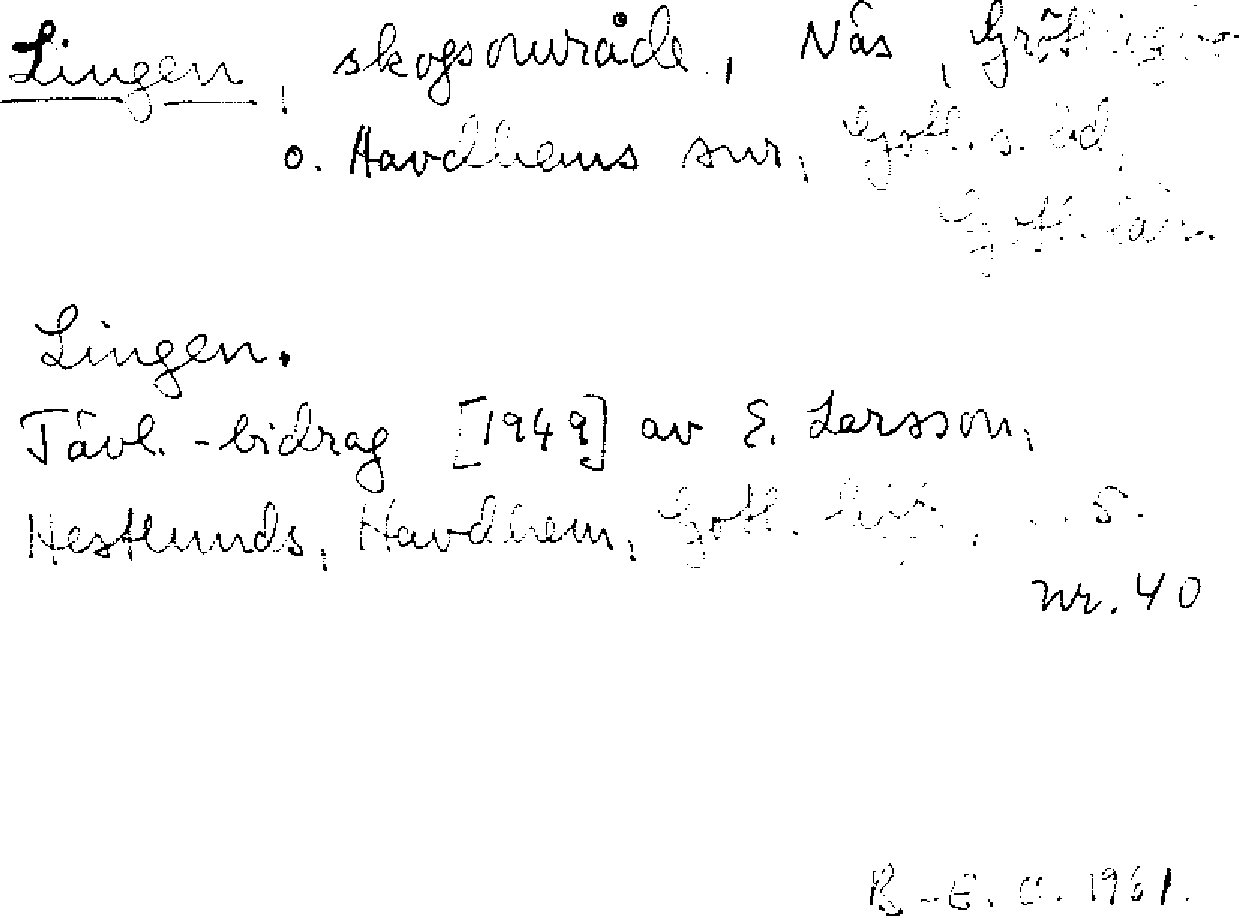 Lingen, skogsområde, Näs, Grötlingbo
o. Havdhems snr, Gotl. s. hd,
Gotl. län.
Lingen.
Tävl.-bidrag [1949] av E. Larsson,
Hestlunds, Havdhem, Gotl. s.
nr. 40
B-E. O. 1961.